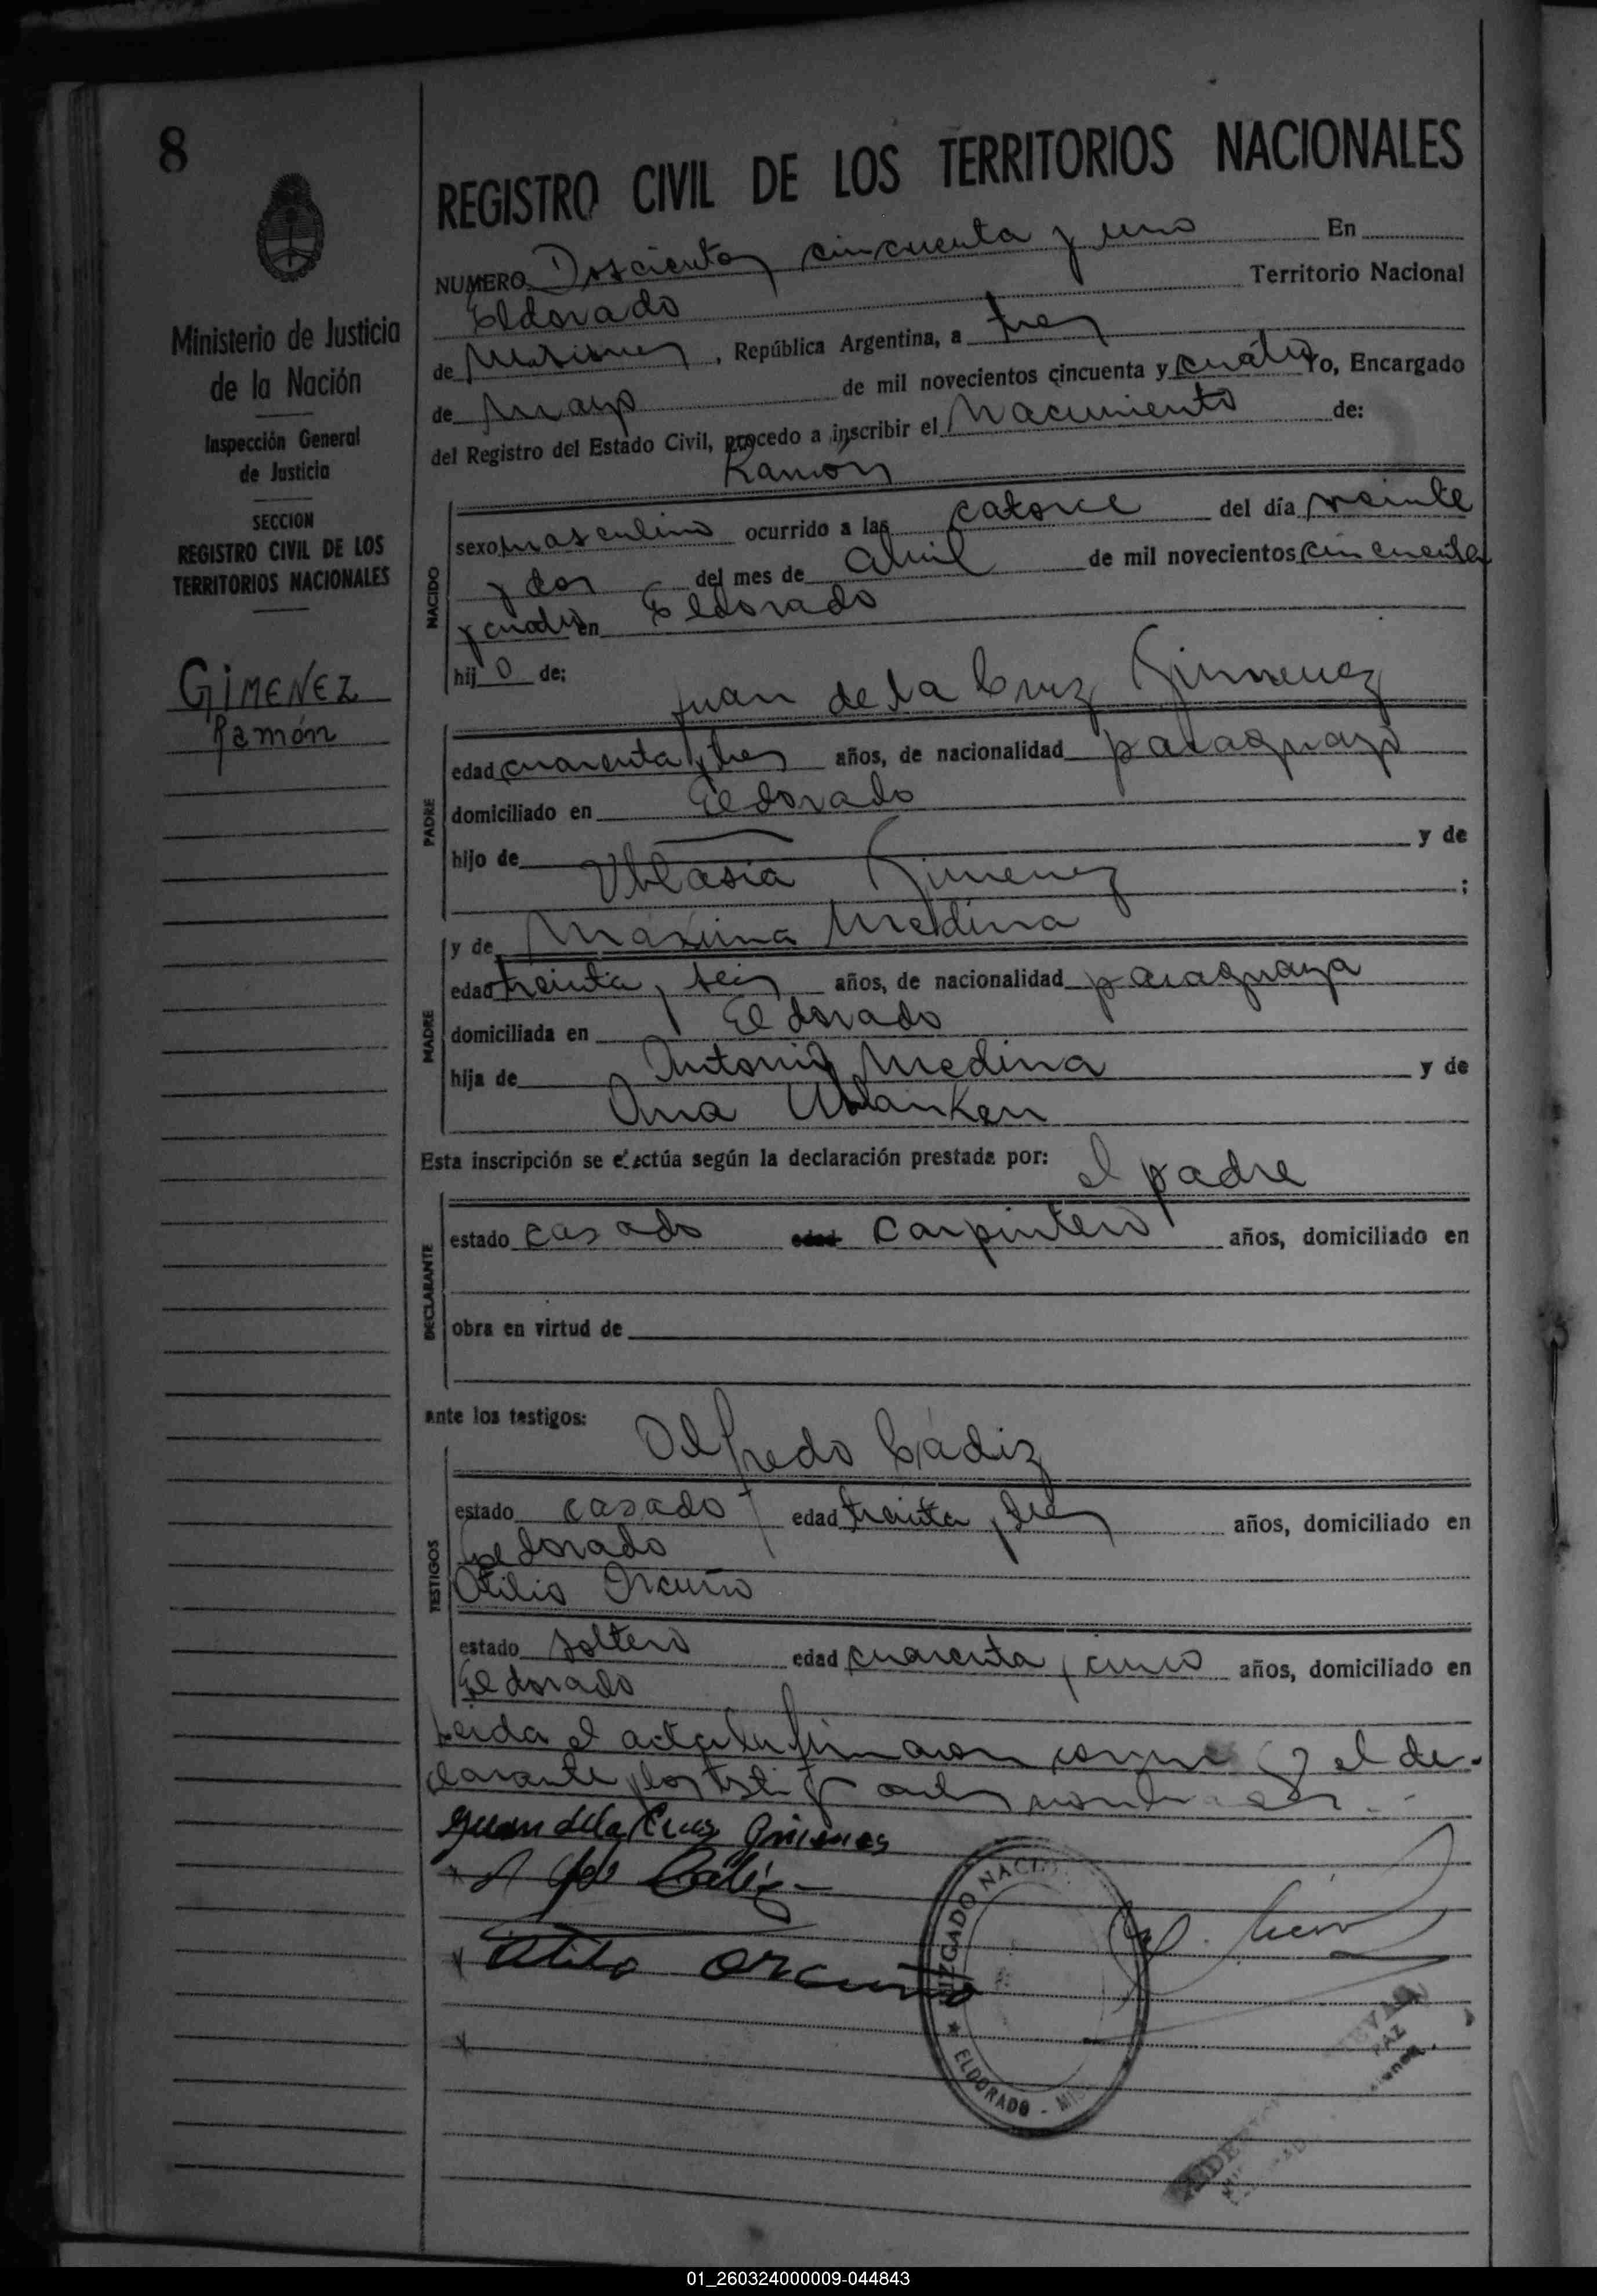 8
REGISTRO CIVIL DE LOS TERRITORIOS NACIONALES
Ministerio de Justicia
de la Nación
Inspección General
de Justicia
SECCION
REGISTRO CIVIL DE LOS
TERRITORIOS NACIONALES
GIMENEZ
Ramón
NUMERO Doscientos cincuenta y uno En
Eldorado Territorio Nacional
de Misiones, República Argentina, a tres
de Mayo de mil novecientos cincuenta y cuatro Yo, Encargado
del Registro del Estado Civil, procedo a inscribir el Nacimiento de:
Ramón
NACIDO
sexo masculino ocurrido a las catorce del día veinte
y dos del mes de Abril de mil novecientos cincuenta
y cuatro en Eldorado
hijo de:
Juan de la Cruz Gimenez
PADRE
edad cuarenta y tres años, de nacionalidad paraguayo
domiciliado en Eldorado
hijo de y de
Gimenez ;
y de Máxima Medina
MADRE
edad treinta y seis años, de nacionalidad paraguaya
domiciliada en Eldorado
hija de Antonio Medina y de
Ana
Esta inscripción se efectúa según la declaración prestada por: el padre
DECLARANTE
estado casado edad carpintero años, domiciliado en
obra en virtud de
ante los testigos:
Alfredo Cádiz
TESTIGOS
estado casado edad treinta y tres años, domiciliado en
Eldorado
Atilio Orcuño
estado soltero edad cuarenta y cinco años, domiciliado en
Eldorado
Leida el acta la firmaron conmigo el de-
clarante y los testigos
Juan de la Cruz Gimenes
Cádiz
Atilio Orcuño
JUZGADO NACIO
★ ELDORADO - MI
PAZ
01_260324000009-044843